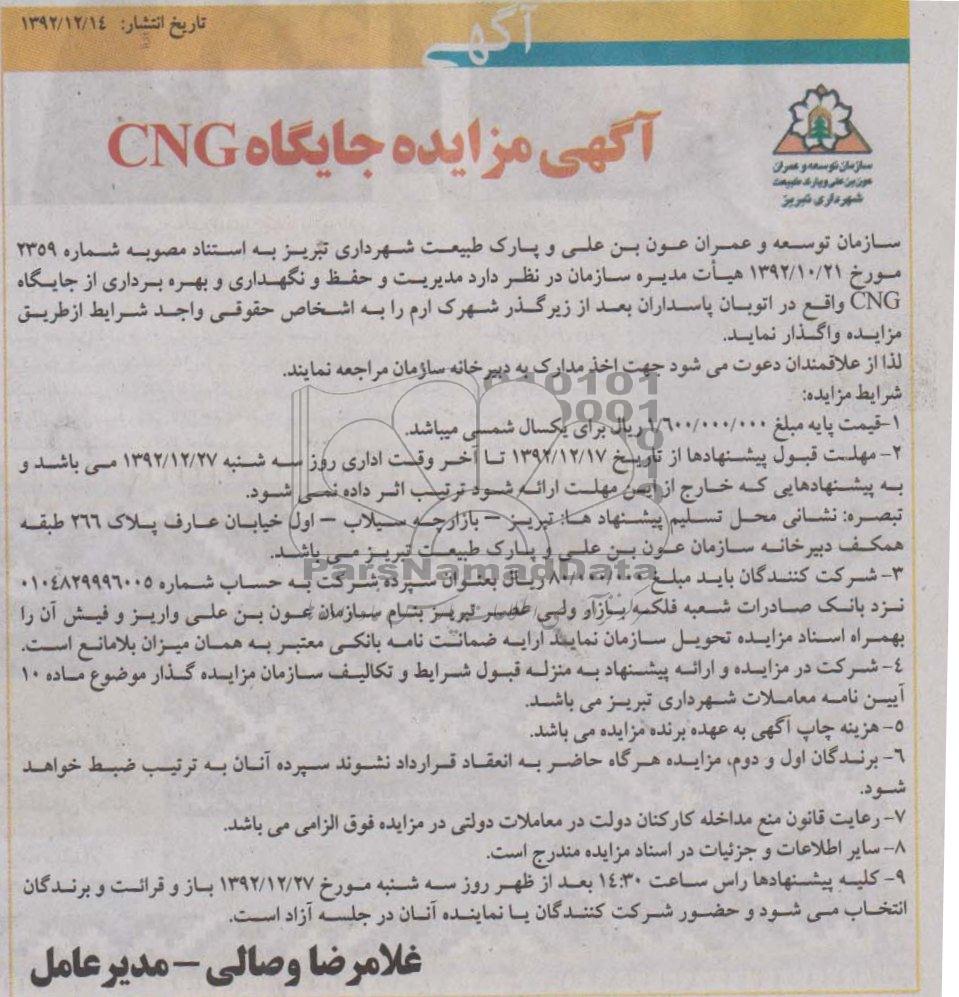 تاریخ انتشار: ۱۳۹۲/۱۲/۱۴
آگهی
آگهی مزایده جایگاه CNG
سازمان توسعه و عمران
عون بن علی و پارک طبیعت
شهرداری تبریز
سازمان توسعه و عمران عون بن علی و پارک طبیعت شهرداری تبریز به استناد مصوبه شماره ۲۳۵۹
مورخ ۱۳۹۲/۱۰/۲۱ هیأت مدیره سازمان در نظر دارد مدیریت و حفظ و نگهداری و بهره برداری از جایگاه
CNG واقع در اتوبان پاسداران بعد از زیرگذر شهرک ارم را به اشخاص حقوقی واجد شرایط ازطریق
مزایده واگذار نماید.
لذا از علاقمندان دعوت می شود جهت اخذ مدارک به دبیرخانه سازمان مراجعه نمایند.
شرایط مزایده:
۱-قیمت پایه مبلغ ۱/۶۰۰/۰۰۰/۰۰۰ ریال برای یکسال شمسی میباشد.
۲- مهلت قبول پیشنهادها از تاریخ ۱۳۹۲/۱۲/۱۷ تا آخر وقت اداری روز سه شنبه ۱۳۹۲/۱۲/۲۷ می باشد و
به پیشنهادهایی که خارج از این مهلت ارائه شود ترتیب اثر داده نمی شود.
تبصره: نشانی محل تسلیم پیشنهاد ها: تبریز – بازارچه سیلاب – اول خیابان عارف پلاک ۲۶۶ طبقه
همکف دبیرخانه سازمان عون بن علی و پارک طبیعت تبریز می باشد.
۳- شرکت کنندگان باید مبلغ ۸۰/۰۰۰/۰۰۰ ریال بعنوان سپرده شرکت به حساب شماره ۰۱۰۴۸۲۹۹۹۶۰۰۵
نزد بانک صادرات شعبه فلکه بازار ولی عصر تبریز بنام سازمان عون بن علی واریز و فیش آن را
بهمراه اسناد مزایده تحویل سازمان نمایند ارایه ضمانت نامه بانکی معتبر به همان میزان بلامانع است.
۴- شرکت در مزایده و ارائه پیشنهاد به منزله قبول شرایط و تکالیف سازمان مزایده گذار موضوع ماده ۱۰
آیین نامه معاملات شهرداری تبریز می باشد.
۵- هزینه چاپ آگهی به عهده برنده مزایده می باشد.
۶- برندگان اول و دوم، مزایده هرگاه حاضر به انعقاد قرارداد نشوند سپرده آنان به ترتیب ضبط خواهد
شود.
۷- رعایت قانون منع مداخله کارکنان دولت در معاملات دولتی در مزایده فوق الزامی می باشد.
۸- سایر اطلاعات و جزئیات در اسناد مزایده مندرج است.
۹- کلیه پیشنهادها راس ساعت ۱۴:۳۰ بعد از ظهر روز سه شنبه مورخ ۱۳۹۲/۱۲/۲۷ باز و قرائت و برندگان
انتخاب می شود و حضور شرکت کنندگان یا نماینده آنان در جلسه آزاد است.
غلامرضا وصالی – مدیرعامل
ParsNamadData